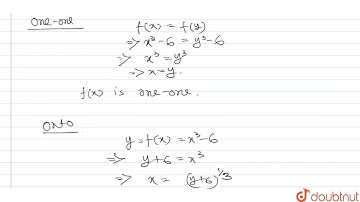 one-one
f(x) = f(y)
⇒ x³-6 = y³-6
⇒ x³ = y³
⇒ x=y.
f(x) is one-one.
onto
y=f(x) = x³-6
⇒ y+6 = x³
⇒ x = (y+6)^1/3
doubtnut